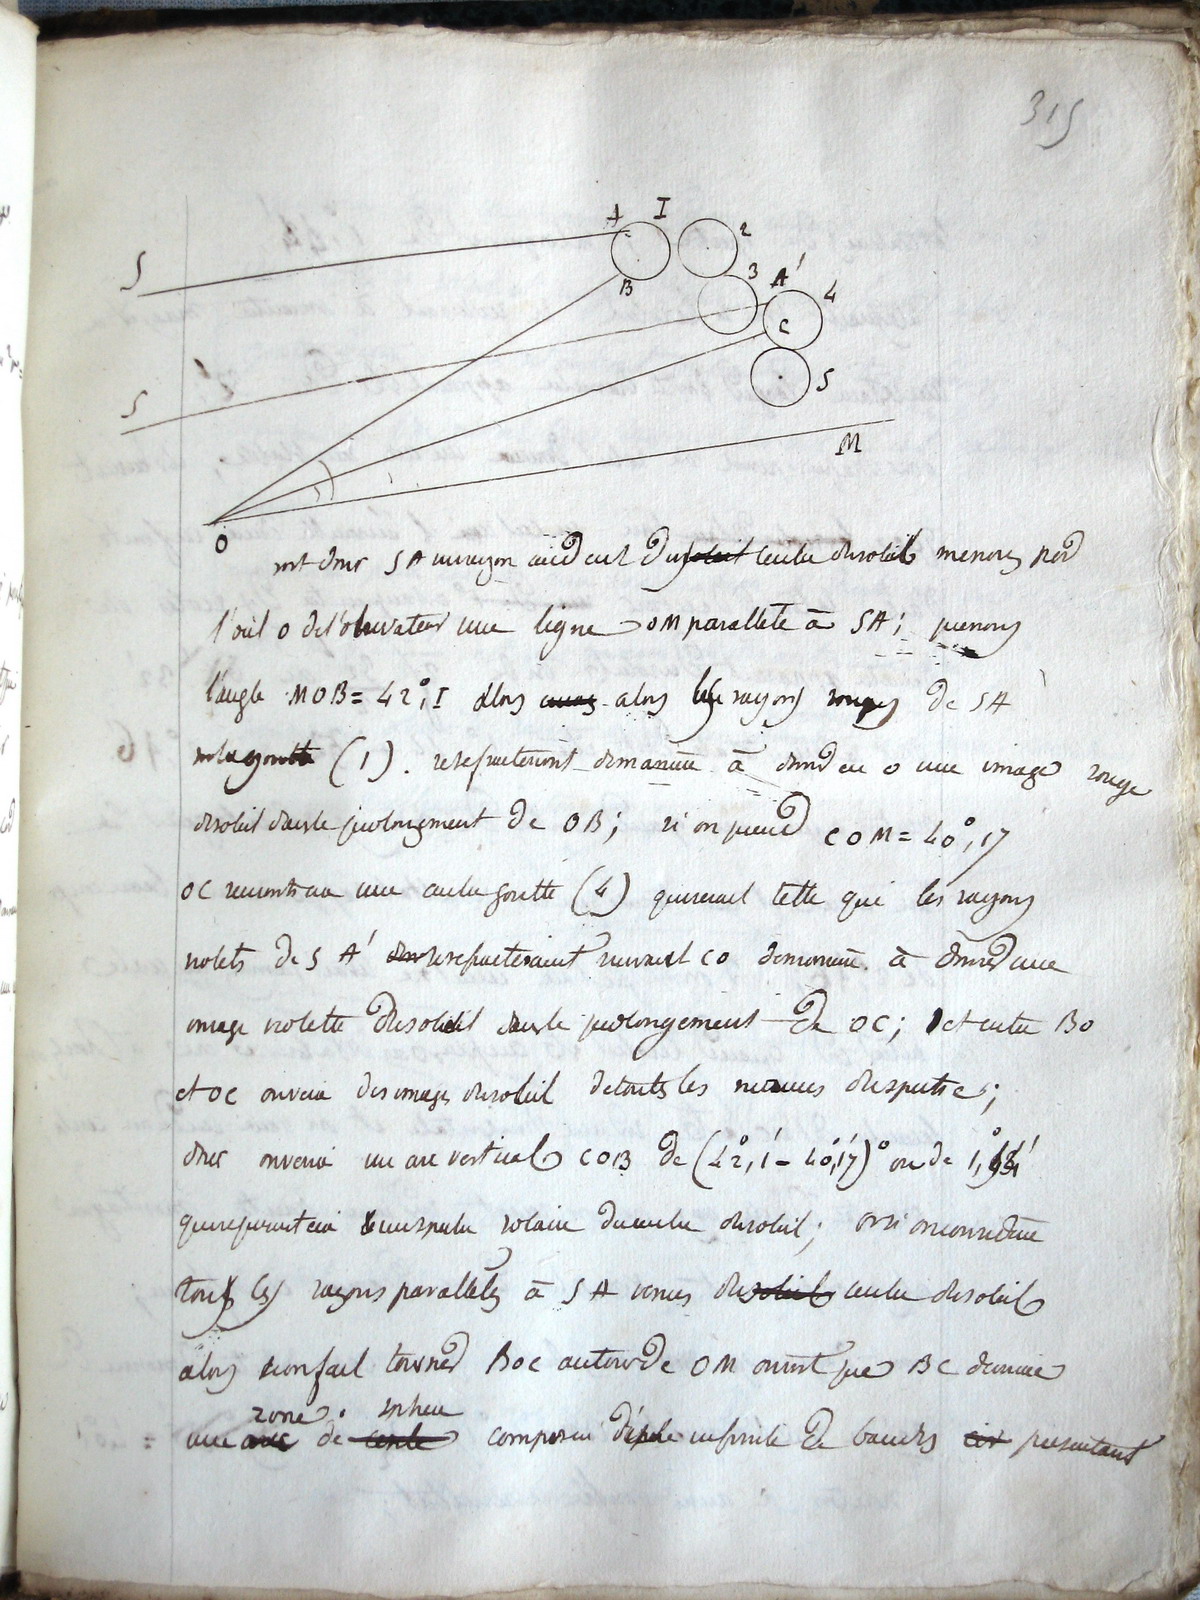 315
A I 2
S B 3 A' 4
C
S 5
M
O
soit donc SA un rayon du soleil centre du soleil menons par
l'œil O de l'observateur une ligne OM parallele à SA; prenons
l'angle MOB = 42°, 1 alors alors les rayons rouges de SA
goutte (1). se refracteront de maniere à donner en O une image rouge
du soleil dans le prolongement de OB; si on prend COM = 40°, 17
OC rencontrera une goutte (4) qui serait telle que les rayons
violets de SA' se refracteraient suivant CO de maniere à donner une
image violette du soleil dans le prolongement de OC; et entre BO
et OC on verra des images du soleil de toutes les nuances du spectre;
donc on verra un arc vertical COB de (42°, 1' - 40°, 17')° ou de 1°,
qui representera spectre solaire du centre du soleil; or si on considere
tous les rayons parallèles à SA venus du soleil centre du soleil
alors si on fait tourner BOC autour de OM on voit que BC donnera
zone
une arc de cercle composée infinité de bandes presentant